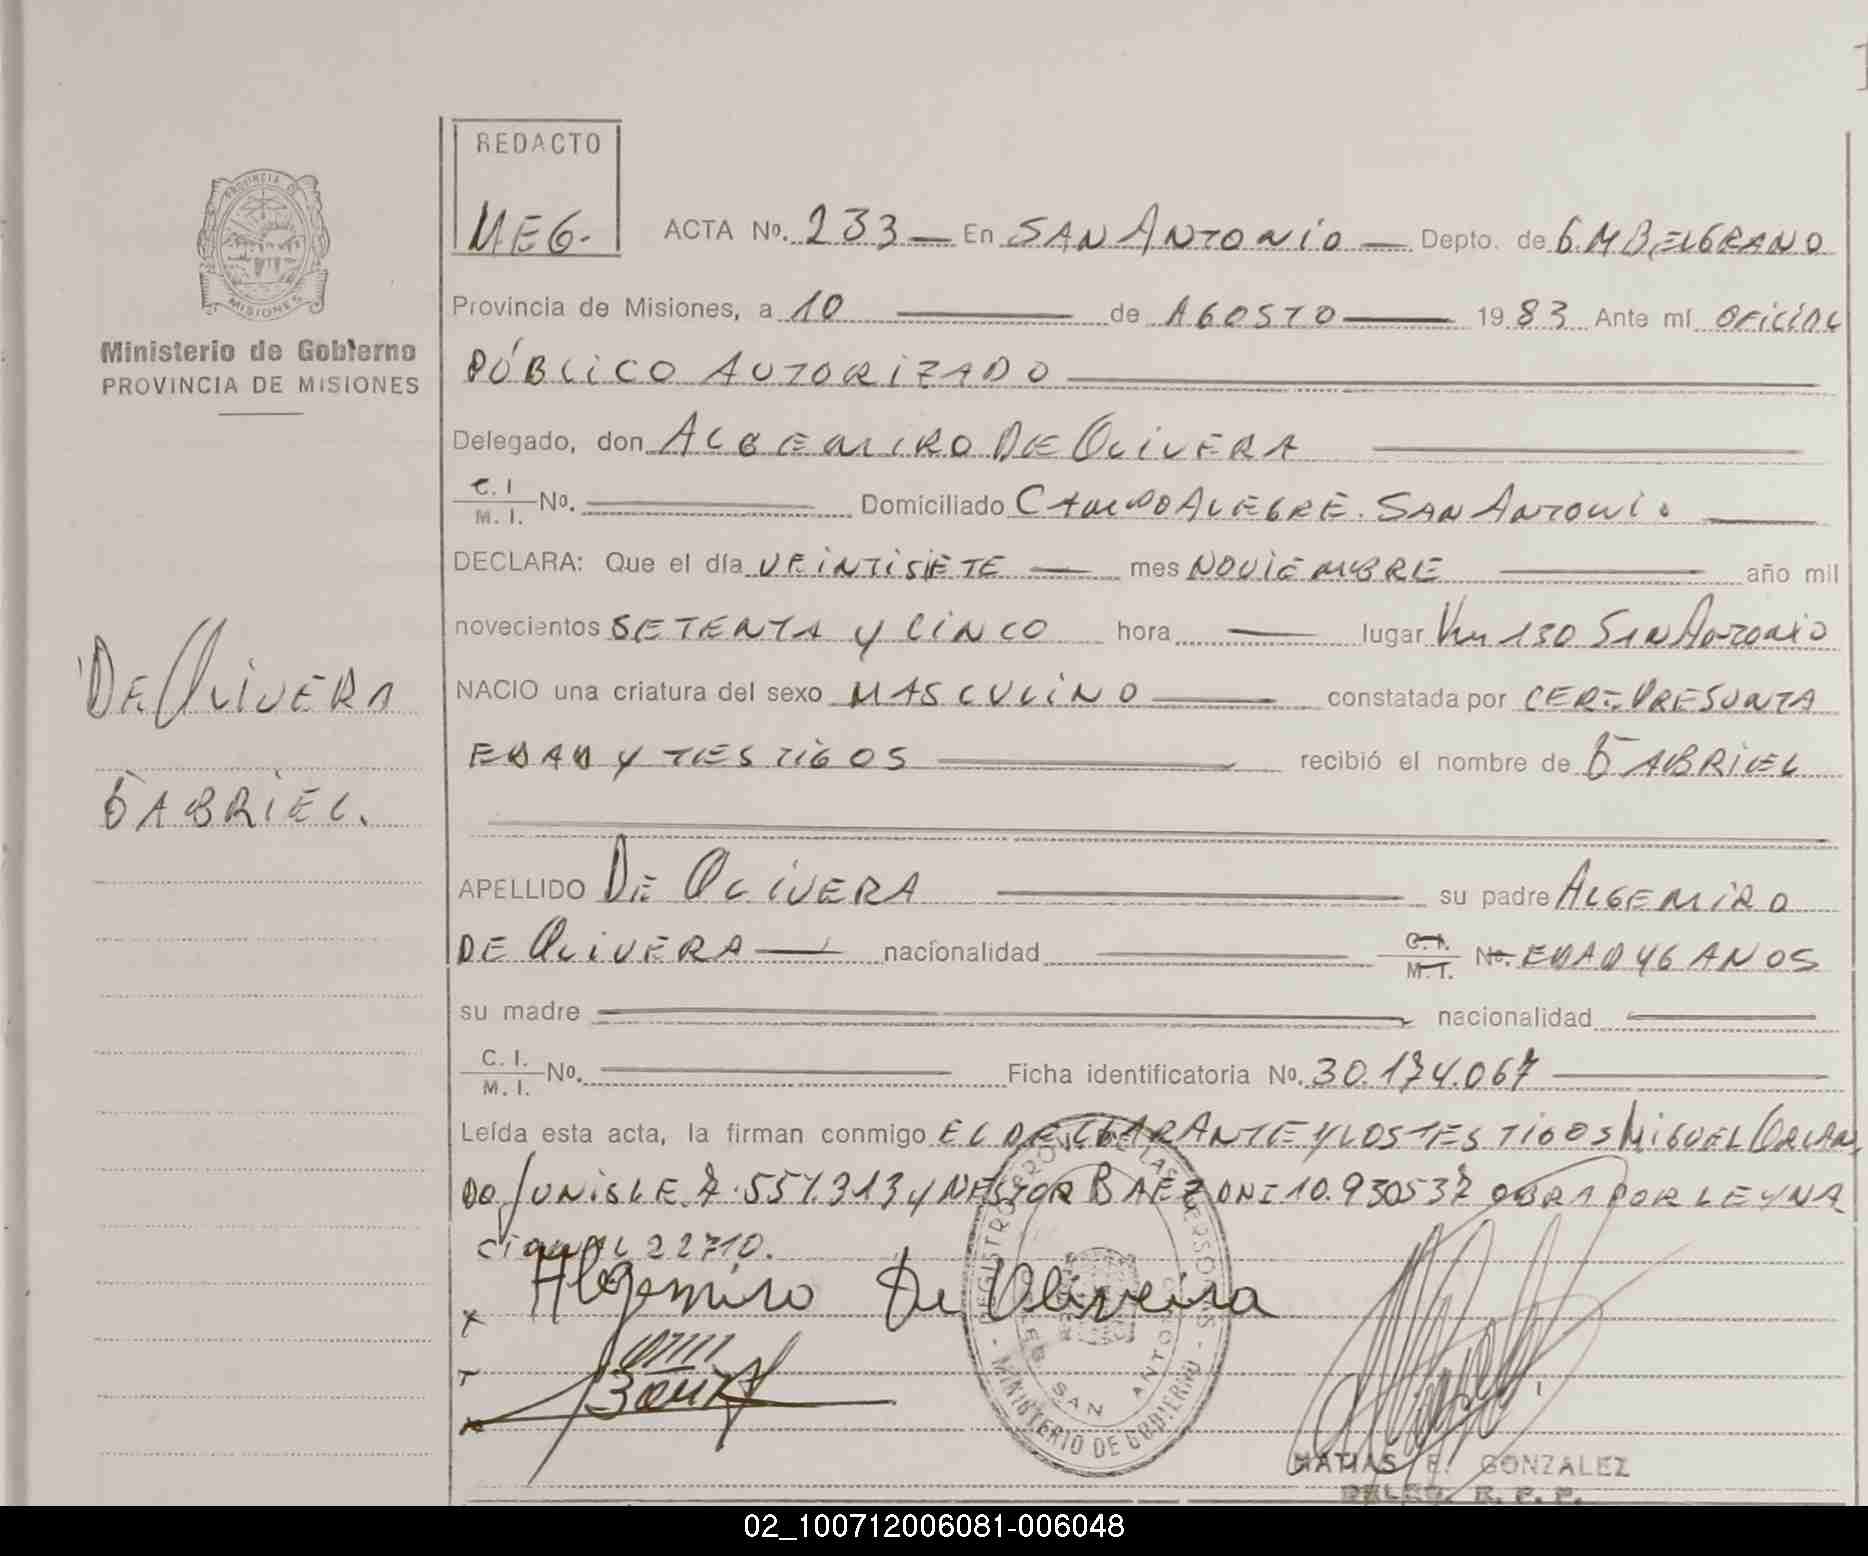 REDACTO
MEG.
ACTA No. 233 — En SAN ANTONIO — Depto. de G M BELGRANO
PROVINCIA DE
MISIONES
Ministerio de Gobierno
PROVINCIA DE MISIONES
Provincia de Misiones, a 10 — de AGOSTO — 1983 Ante mí OFICIAL
PÚBLICO AUTORIZADO
Delegado, don ALGEMIRO DE OLIVERA
C. I
M. I. No. — Domiciliado CAMPO ALEGRE. SAN ANTONIO
DECLARA: Que el día VEINTISIETE — mes NOVIEMBRE — año mil
novecientos SETENTA Y CINCO hora — lugar Km 130 SAN ANTONIO
NACIO una criatura del sexo MASCULINO — constatada por CERT. PRESUNTA
EDAD Y TESTIGOS — recibió el nombre de GABRIEL
DE OLIVERA
GABRIEL.
APELLIDO DE OLIVERA — su padre ALGEMIRO
DE OLIVERA — nacionalidad — C. I. M. I. No. EDAD 46 ANOS
su madre — nacionalidad —
C. I.
M. I. No. — Ficha identificatoria No. 30.174.067 —
Leída esta acta, la firman conmigo EL DECLARANTE Y LOS TESTIGOS MIGUEL ORLAN
DO JUNISLE 7.557.313 Y NESTOR BAEZ DNI 10.930537 OBRA POR LEY NA
CIONAL 22710.
Algemiro De Oliveira
REGISTRO PROV. DE LAS PERSONAS
SAN ANTONIO
MINISTERIO DE GOBIERNO
MATIAS E. GONZALEZ
DELEG. R. P. P.
02_100712006081-006048